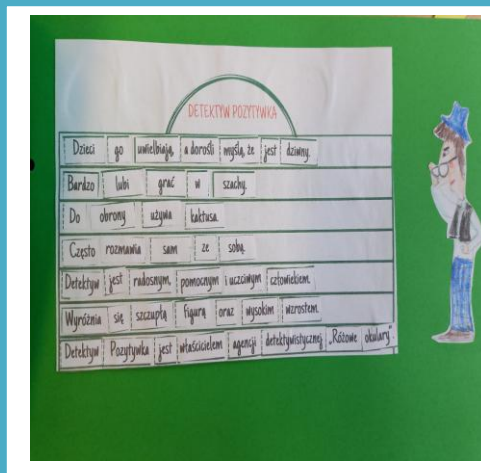 DETEKTYW POZYTYWKA
Dzieci go uwielbiają, a dorośli myślą, że jest dziwny.
Bardzo lubi grać w szachy.
Do obrony używa kaktusa.
Często rozmawia sam ze sobą.
Detektyw jest radosnym, pomocnym i uczciwym człowiekiem.
Wyróżnia się szczupłą figurą oraz wysokim wzrostem.
Detektyw Pozytywka jest właścicielem agencji detektywistycznej „Różowe okulary".